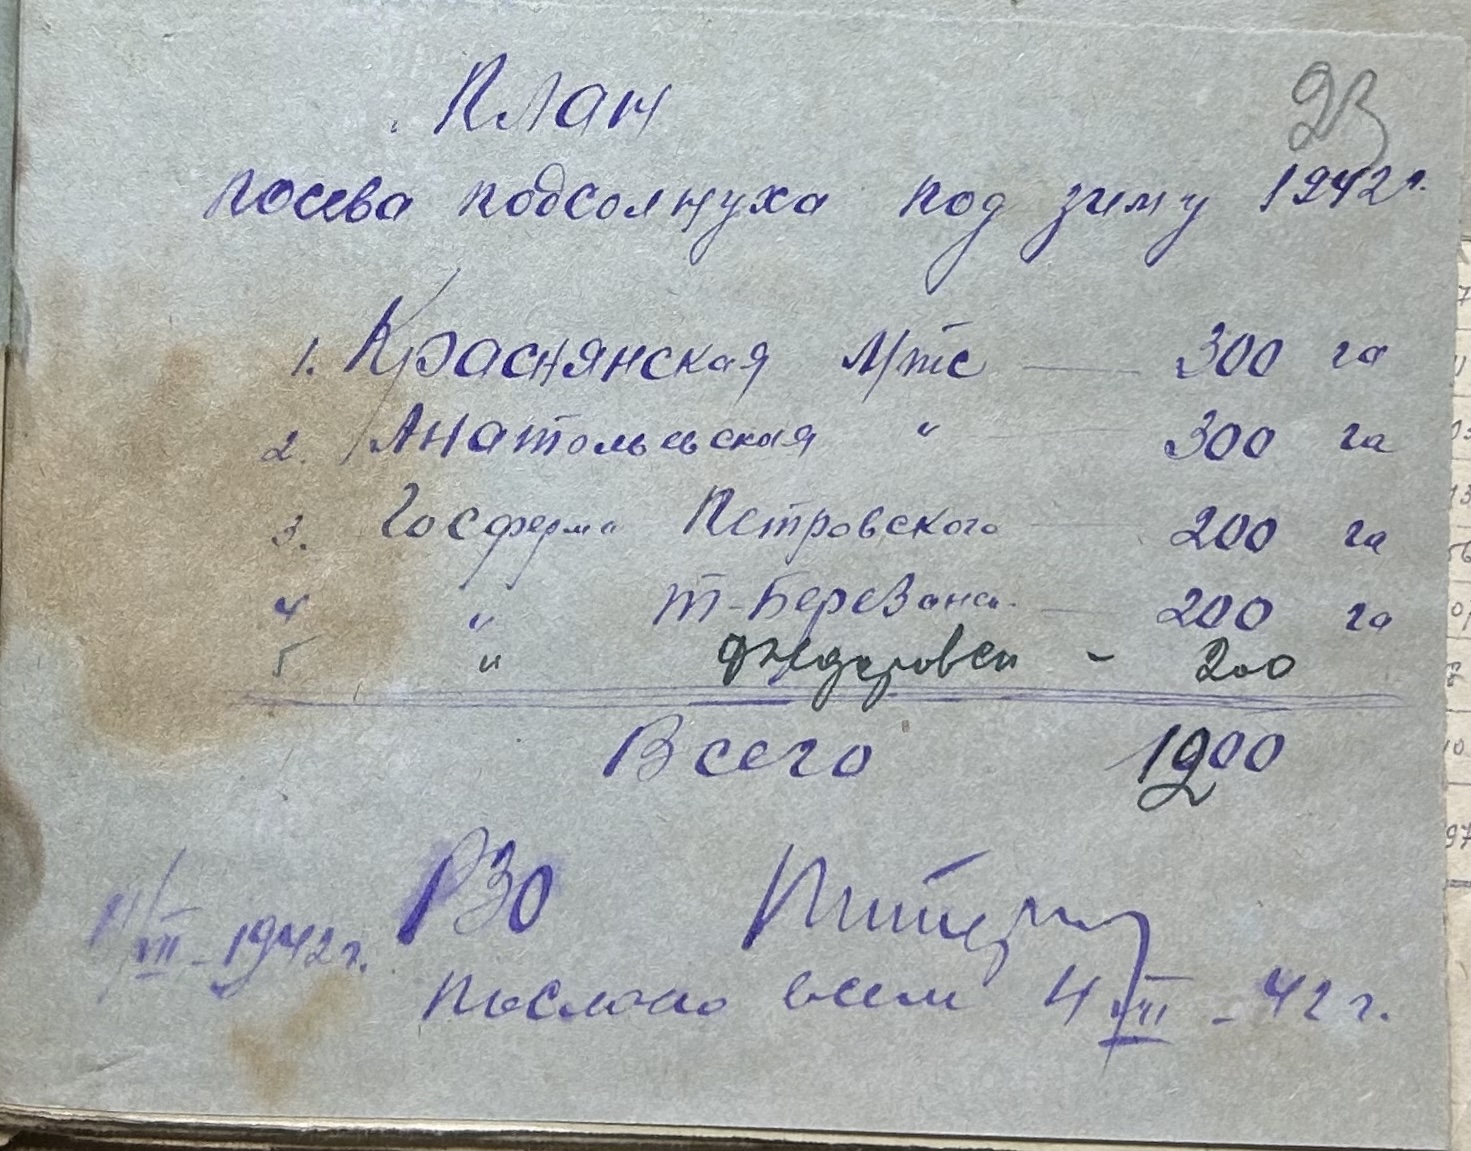 23
План
посева подсолнуха под зиму 1942 г.
1. Краснянская Мтс — 300 га
2. Анатольевская " — 300 га
3. Госферма Петровского 200 га
4 " Т-Березана — 200 га
5 " - 200
Всего 1200
РЗО
VII - 1942 г.
послано всем 4 VII - 42 г.